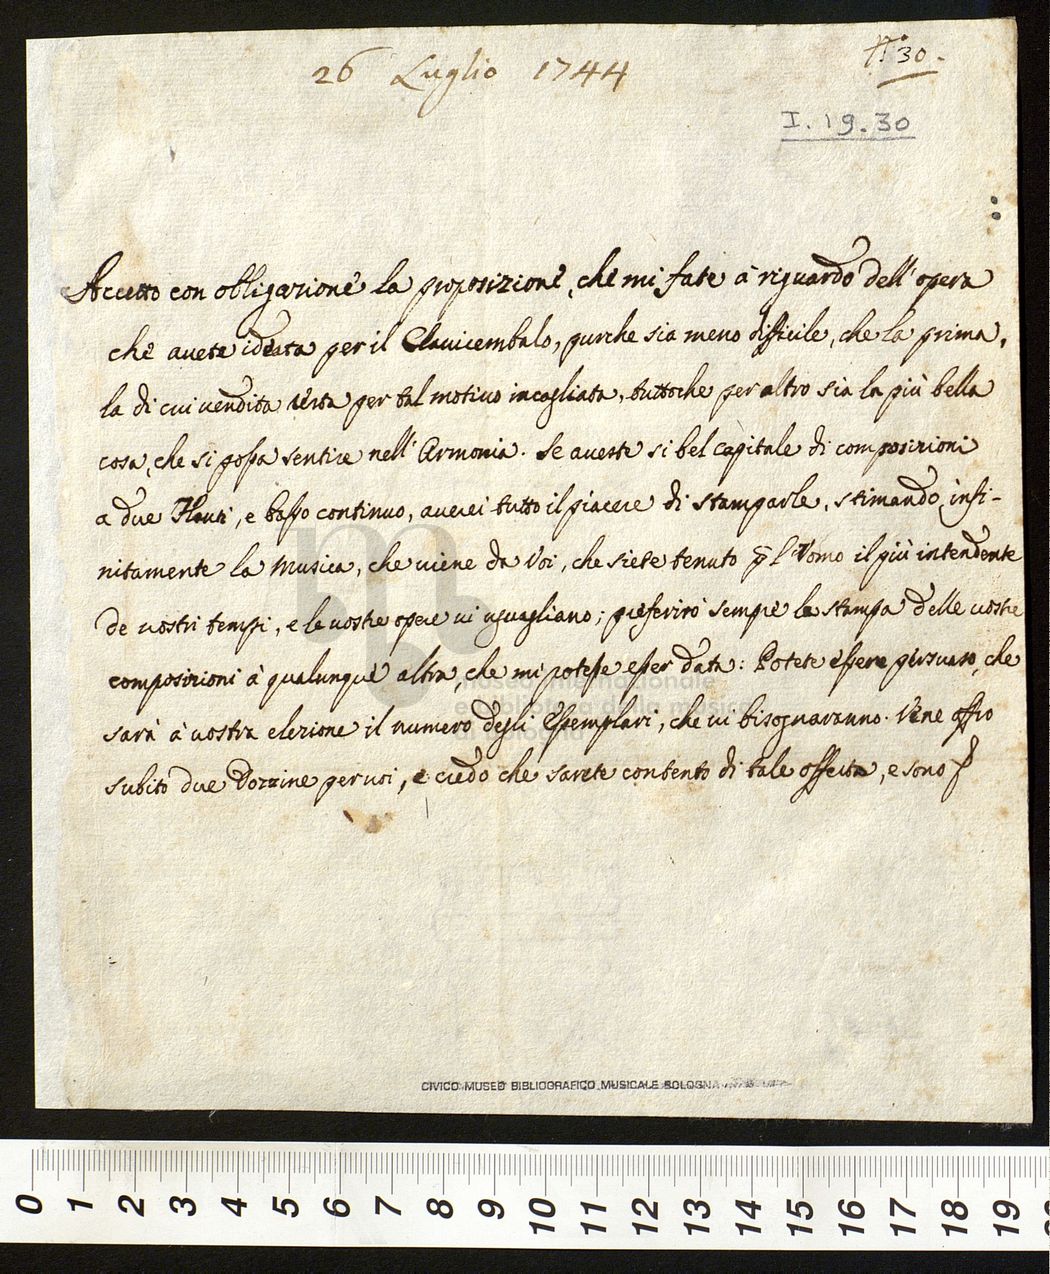 26 Luglio 1744
N: 30.
I. 19. 30
Accetto con obligazione la proposizione, che mi fate à riguardo dell' opera
che avete ideata per il Clavicembalo, purche sia meno difficile, che la prima,
la di cui vendita resta per tal motivo incagliata, tuttoche per altro sia la più bella
cosa, che si possa sentire nell' Armonia. Se aveste si bel capitale di composizioni
a due Flauti, e basso continuo, averei tutto il piacere di stamparle, stimando infi-
nitamente la Musica, che viene da Voi, che siete tenuto p l' Uomo il più intendente
de nostri tempi, e le vostre opere vi uguagliano; preferirò sempre la stampa delle vostre
composizioni à qualunque altra, che mi potesse esser data: Potete essere persuaso, che
sarà à vostra elezione il numero degli Essemplari, che vi bisognaranno. Vene offro
subito due Dozzine per voi, e credo che sarete contento di tale offerta, e sono
museo internazionale
e biblioteca della musica
di bologna
CIVICO MUSEO BIBLIOGRAFICO MUSICALE BOLOGNA
0 1 2 3 4 5 6 7 8 9 10 11 12 13 14 15 16 17 18 19